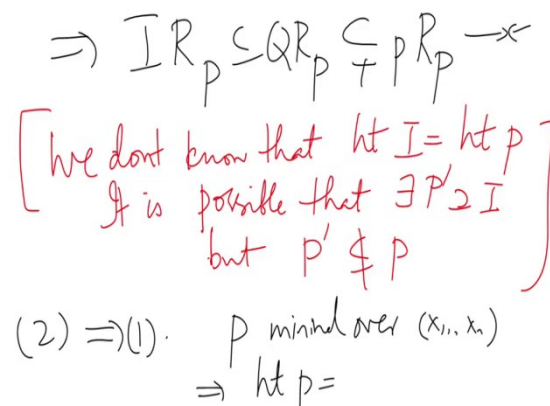 ⇒ I R_p ⊆ Q R_p ⊊ p R_p →×
[ We dont know that ht I = ht p
It is possible that ∃ P' ⊇ I
but p' ⊄ p ]
(2) ⇒ (1). p minimal over (x_1,.. x_n)
⇒ ht p =